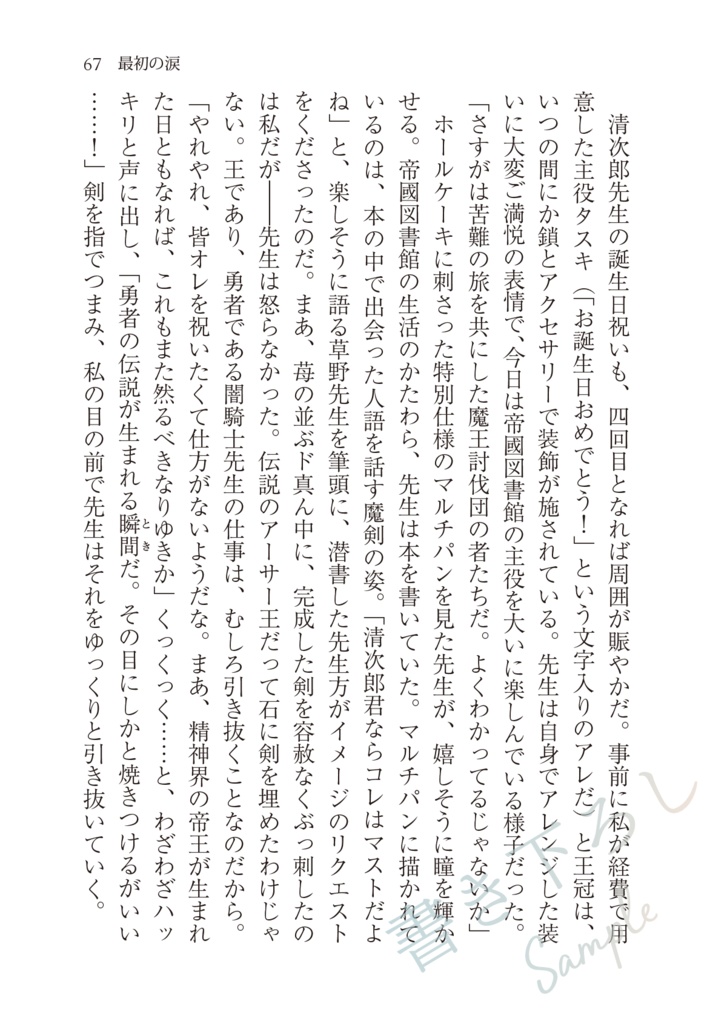 67　最初の涙
　清次郎先生の誕生日祝いも、四回目となれば周囲が賑やかだ。事前に私が経費で用
意した主役タスキ（「お誕生日おめでとう！」という文字入りのアレだ）と王冠は、
いつの間にか鎖とアクセサリーで装飾が施されている。先生は自身でアレンジした装
いに大変ご満悦の表情で、今日は帝國図書館の主役を大いに楽しんでいる様子だった。
「さすがは苦難の旅を共にした魔王討伐団の者たちだ。よくわかってるじゃないか」
　ホールケーキに刺さった特別仕様のマルチパンを見た先生が、嬉しそうに瞳を輝か
せる。帝國図書館の生活のかたわら、先生は本を書いていた。マルチパンに描かれて
いるのは、本の中で出会った人語を話す魔剣の姿。「清次郎君ならコレはマストだよ
ね」と、楽しそうに語る草野先生を筆頭に、潜書した先生方がイメージのリクエスト
をくださったのだ。まあ、苺の並ぶド真ん中に、完成した剣を容赦なくぶっ刺したの
は私だが――先生は怒らなかった。伝説のアーサー王だって石に剣を埋めたわけじゃ
ない。王であり、勇者である闇騎士先生の仕事は、むしろ引き抜くことなのだから。
「やれやれ、皆オレを祝いたくて仕方がないようだな。まあ、精神界の帝王が生まれ
た日ともなれば、これもまた然るべきなりゆきか」くっくっく……と、わざわざハッ
キリと声に出し、「勇者の伝説が生まれる瞬間だ。その目にしかと焼きつけるがいい
とき
……！」剣を指でつまみ、私の目の前で先生はそれをゆっくりと引き抜いていく。
書き下ろし
Sample